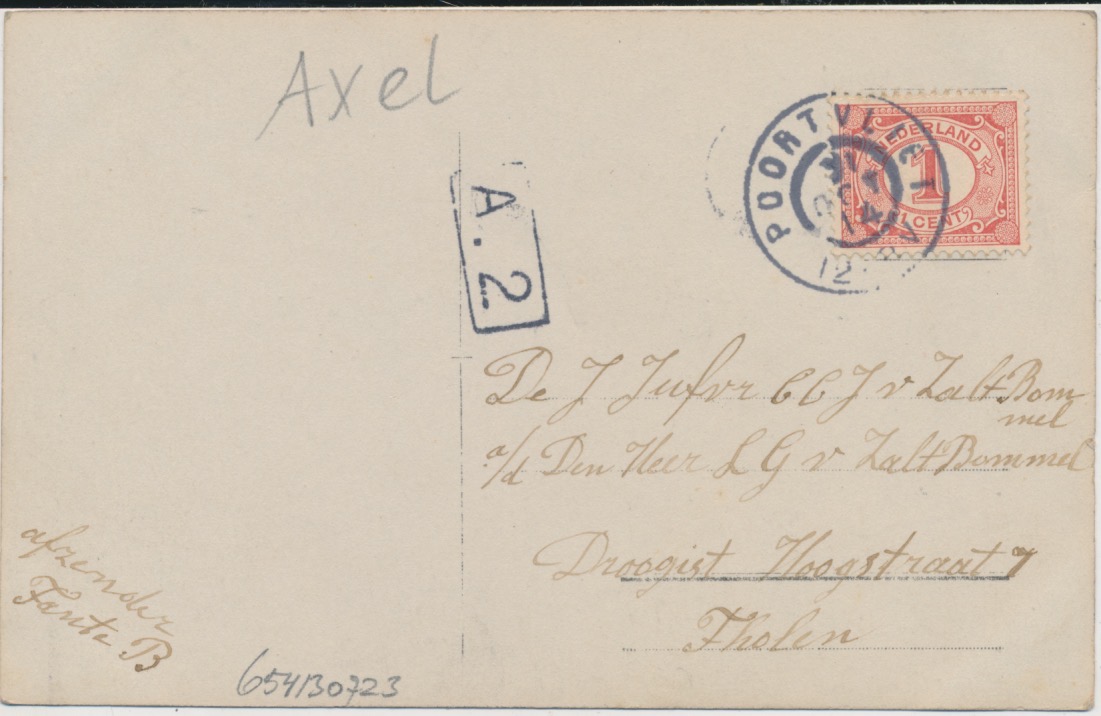 Axel
POORTVLIET
NEDERLAND
1
1 CENT
12
A.2
De J Jufvr C C J v ZaltBom
mel
a/d Den Heer L G v ZaltBommel
Droogist Hoogstraat 7
Tholen
afzender
Tante B
654130723